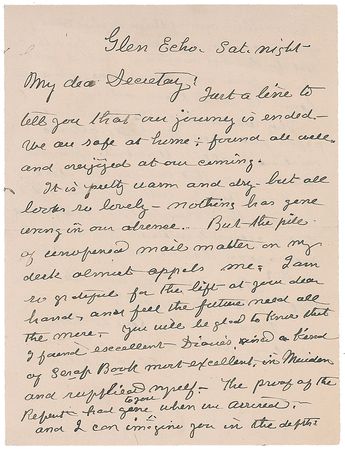 Glen Echo. Sat. night-
My dea Secretary!
Just a line to
tell you that our journey is ended.-
We are safe at home; found all well.
and rejoiced at our coming.
It is pretty warm and dry- but all
looks so lovely- nothing has gone
wrong in our absence.. But the pile
of unopened mail matter on my
desk almost appals me; I am
so grateful for the lift at your dear
hands, and feel the future need all
the more- you will be glad to know that
I found excellent Diaries, and a kind
of Scrap Book most excellent, in Meriden
and supplied myself- The proof of the
Report- had gone to you when we arrived.
and I can imagine you in the depths